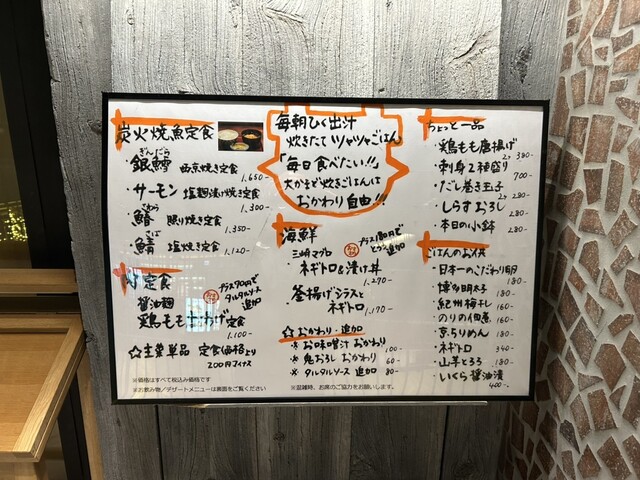 炭火焼魚定食
ぎんだら
・銀鱈 西京焼き定食
1,650-
・サーモン 塩麹漬け焼き定食
1,300-
さわら
・鰆 照り焼き定食
1,350-
さば
・鯖 塩焼き定食
1,120-
定食
プラス90円で
タルタルソース
追加
醤油麹
鶏もも唐揚げ定食
1,100-
☆主菜単品 定食価格より
200円マイナス
※価格はすべて税込み価格です
※お飲み物／デザートメニューは裏面をご覧ください
毎朝ひく出汁
炊きたてツヤツヤごはん
「毎日食べたい!!」
大かまど炊きごはんは
おかわり自由!!
海鮮
プラス180円で
とろろ追加
三崎マグロ
・ネギトロ&漬け丼
1,270-
釜揚げシラスと
ネギトロ
1,170-
☆おかわり・追加
※お味噌汁おかわり
100-
※鬼おろしおかわり 60-
※タルタルソース 追加 80-
※混雑時、お席のご協力をお願いします。
ちょっと一品
・鶏もも唐揚げ
2ヶ 380-
・刺身2種盛り
700-
・だし巻き玉子
2ヶ 280-
・しらすおろし
280-
・本日の小鉢
280-
ごはんのお供
・日本一のこだわり卵
180-
・博多明太子
180-
・紀州梅干し 160-
・のりの佃煮 160-
・京ちりめん 180-
・ネギトロ 340-
・山芋とろろ 180-
・いくら醤油漬
400-